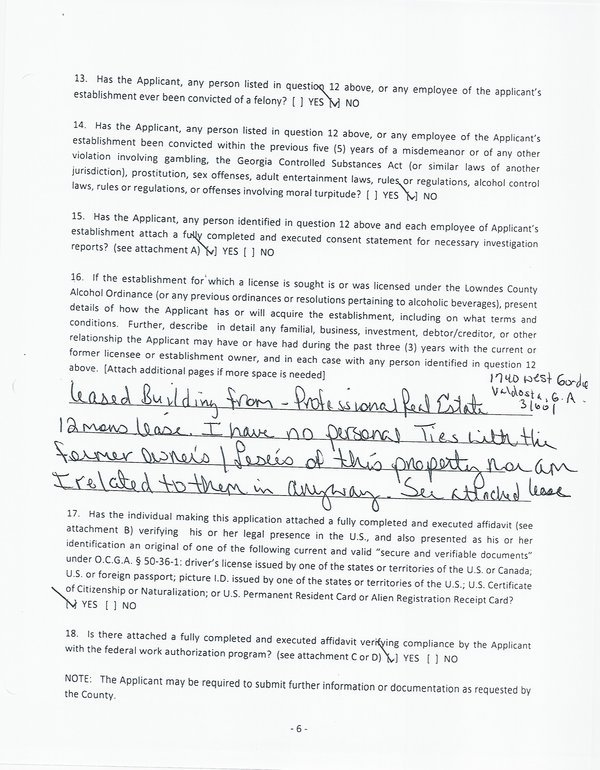 13. Has the Applicant, any person listed in question 12 above, or any employee of the applicant's
establishment ever been convicted of a felony? [ ] YES [✓] NO
14. Has the Applicant, any person listed in question 12 above, or any employee of the Applicant's
establishment been convicted within the previous five (5) years of a misdemeanor or of any other
violation involving gambling, the Georgia Controlled Substances Act (or similar laws of another
jurisdiction), prostitution, sex offenses, adult entertainment laws, rules or regulations, alcohol control
laws, rules or regulations, or offenses involving moral turpitude? [ ] YES [✓] NO
15. Has the Applicant, any person identified in question 12 above and each employee of Applicant's
establishment attach a fully completed and executed consent statement for necessary investigation
reports? (see attachment A) [✓] YES [ ] NO
16. If the establishment for which a license is sought is or was licensed under the Lowndes County
Alcohol Ordinance (or any previous ordinances or resolutions pertaining to alcoholic beverages), present
details of how the Applicant has or will acquire the establishment, including on what terms and
conditions. Further, describe in detail any familial, business, investment, debtor/creditor, or other
relationship the Applicant may have or have had during the past three (3) years with the current or
former licensee or establishment owner, and in each case with any person identified in question 12
above. [Attach additional pages if more space is needed]
1740 West Gordon
Valdosta, G.A.
31601
Leased Building from - Professional Real Estate
12 mons lease. I have no personal Ties with the
former owners / Lesees of this property nor am
I related to them in anyway. See attached lease
17. Has the individual making this application attached a fully completed and executed affidavit (see
attachment B) verifying his or her legal presence in the U.S., and also presented as his or her
identification an original of one of the following current and valid "secure and verifiable documents"
under O.C.G.A. § 50-36-1: driver's license issued by one of the states or territories of the U.S. or Canada;
U.S. or foreign passport; picture I.D. issued by one of the states or territories of the U.S.; U.S. Certificate
of Citizenship or Naturalization; or U.S. Permanent Resident Card or Alien Registration Receipt Card?
[✓] YES [ ] NO
18. Is there attached a fully completed and executed affidavit verifying compliance by the Applicant
with the federal work authorization program? (see attachment C or D) [✓] YES [ ] NO
NOTE: The Applicant may be required to submit further information or documentation as requested by
the County.
- 6 -